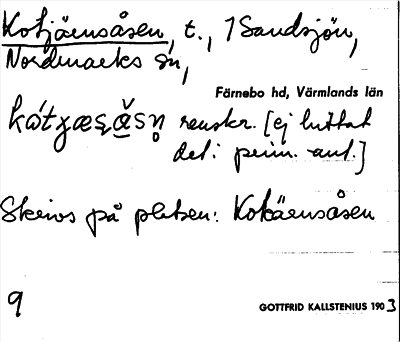 Kotjärnsåsen, t., 1 Sandsjön,
Nordmarks sn,
Färnebo hd, Värmlands län
renskr. [ej hittat
det i prim. ant.]
Skrivs på platsen: Kokärnsåsen
9
GOTTFRID KALLSTENIUS 1903